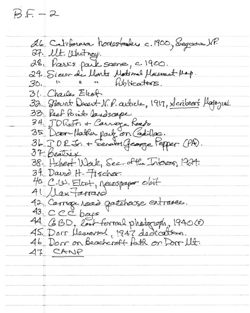 BF-2
26. California homesteaders c. 1900, Sequoia NP
27. Mt. Whitney.
28. Parks park scene, c. 1900.
29. Sieur de Monts National Monument Map.
30. " " " Publications.
31. Charles Eliot.
32. Mount Desert N.P. article, 1917, Scribner's Magazine
33. Reef Point landscape
34. JDR Jr. + Carriage Roads
35. Dorr- park on Cadillac.
36. JDR Jr. + Senator George Pepper (PA).
37. Beatrix
38. Hubert Work, Sec. of the Interior, 1924.
39. David H. Fischer
40. C.W. Eliot, newspaper obit
41. Max Farrand
42. Carriage road gatehouse entrance.
43. CCC boys
44. GBD, last formal photograph, 1940(?)
45. Dorr Memorial, 1947 dedication.
46. Dorr on Beachcroft Path on Dorr Mt.
47. CANP